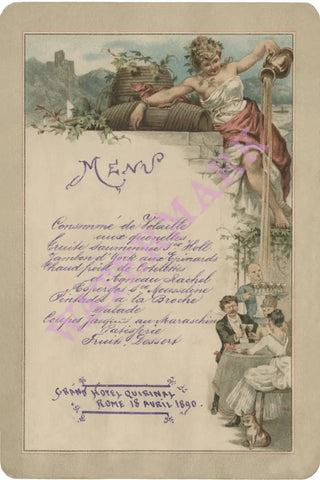 MENU
Consommé de Volaille
aux quenelles
Truite saumonnée Sce Holl.
Jambon d'York aux Epinards
Chaud froid de Côtelettes
d'Agneau Rachel
Asperges Sce Mousseline
Pintades à la Broche
Salade
Coupes Jacques au Maraschino
Patisserie
Fruits Dessert
GRAND HÔTEL QUIRINAL
ROME 18 AVRIL 1890.